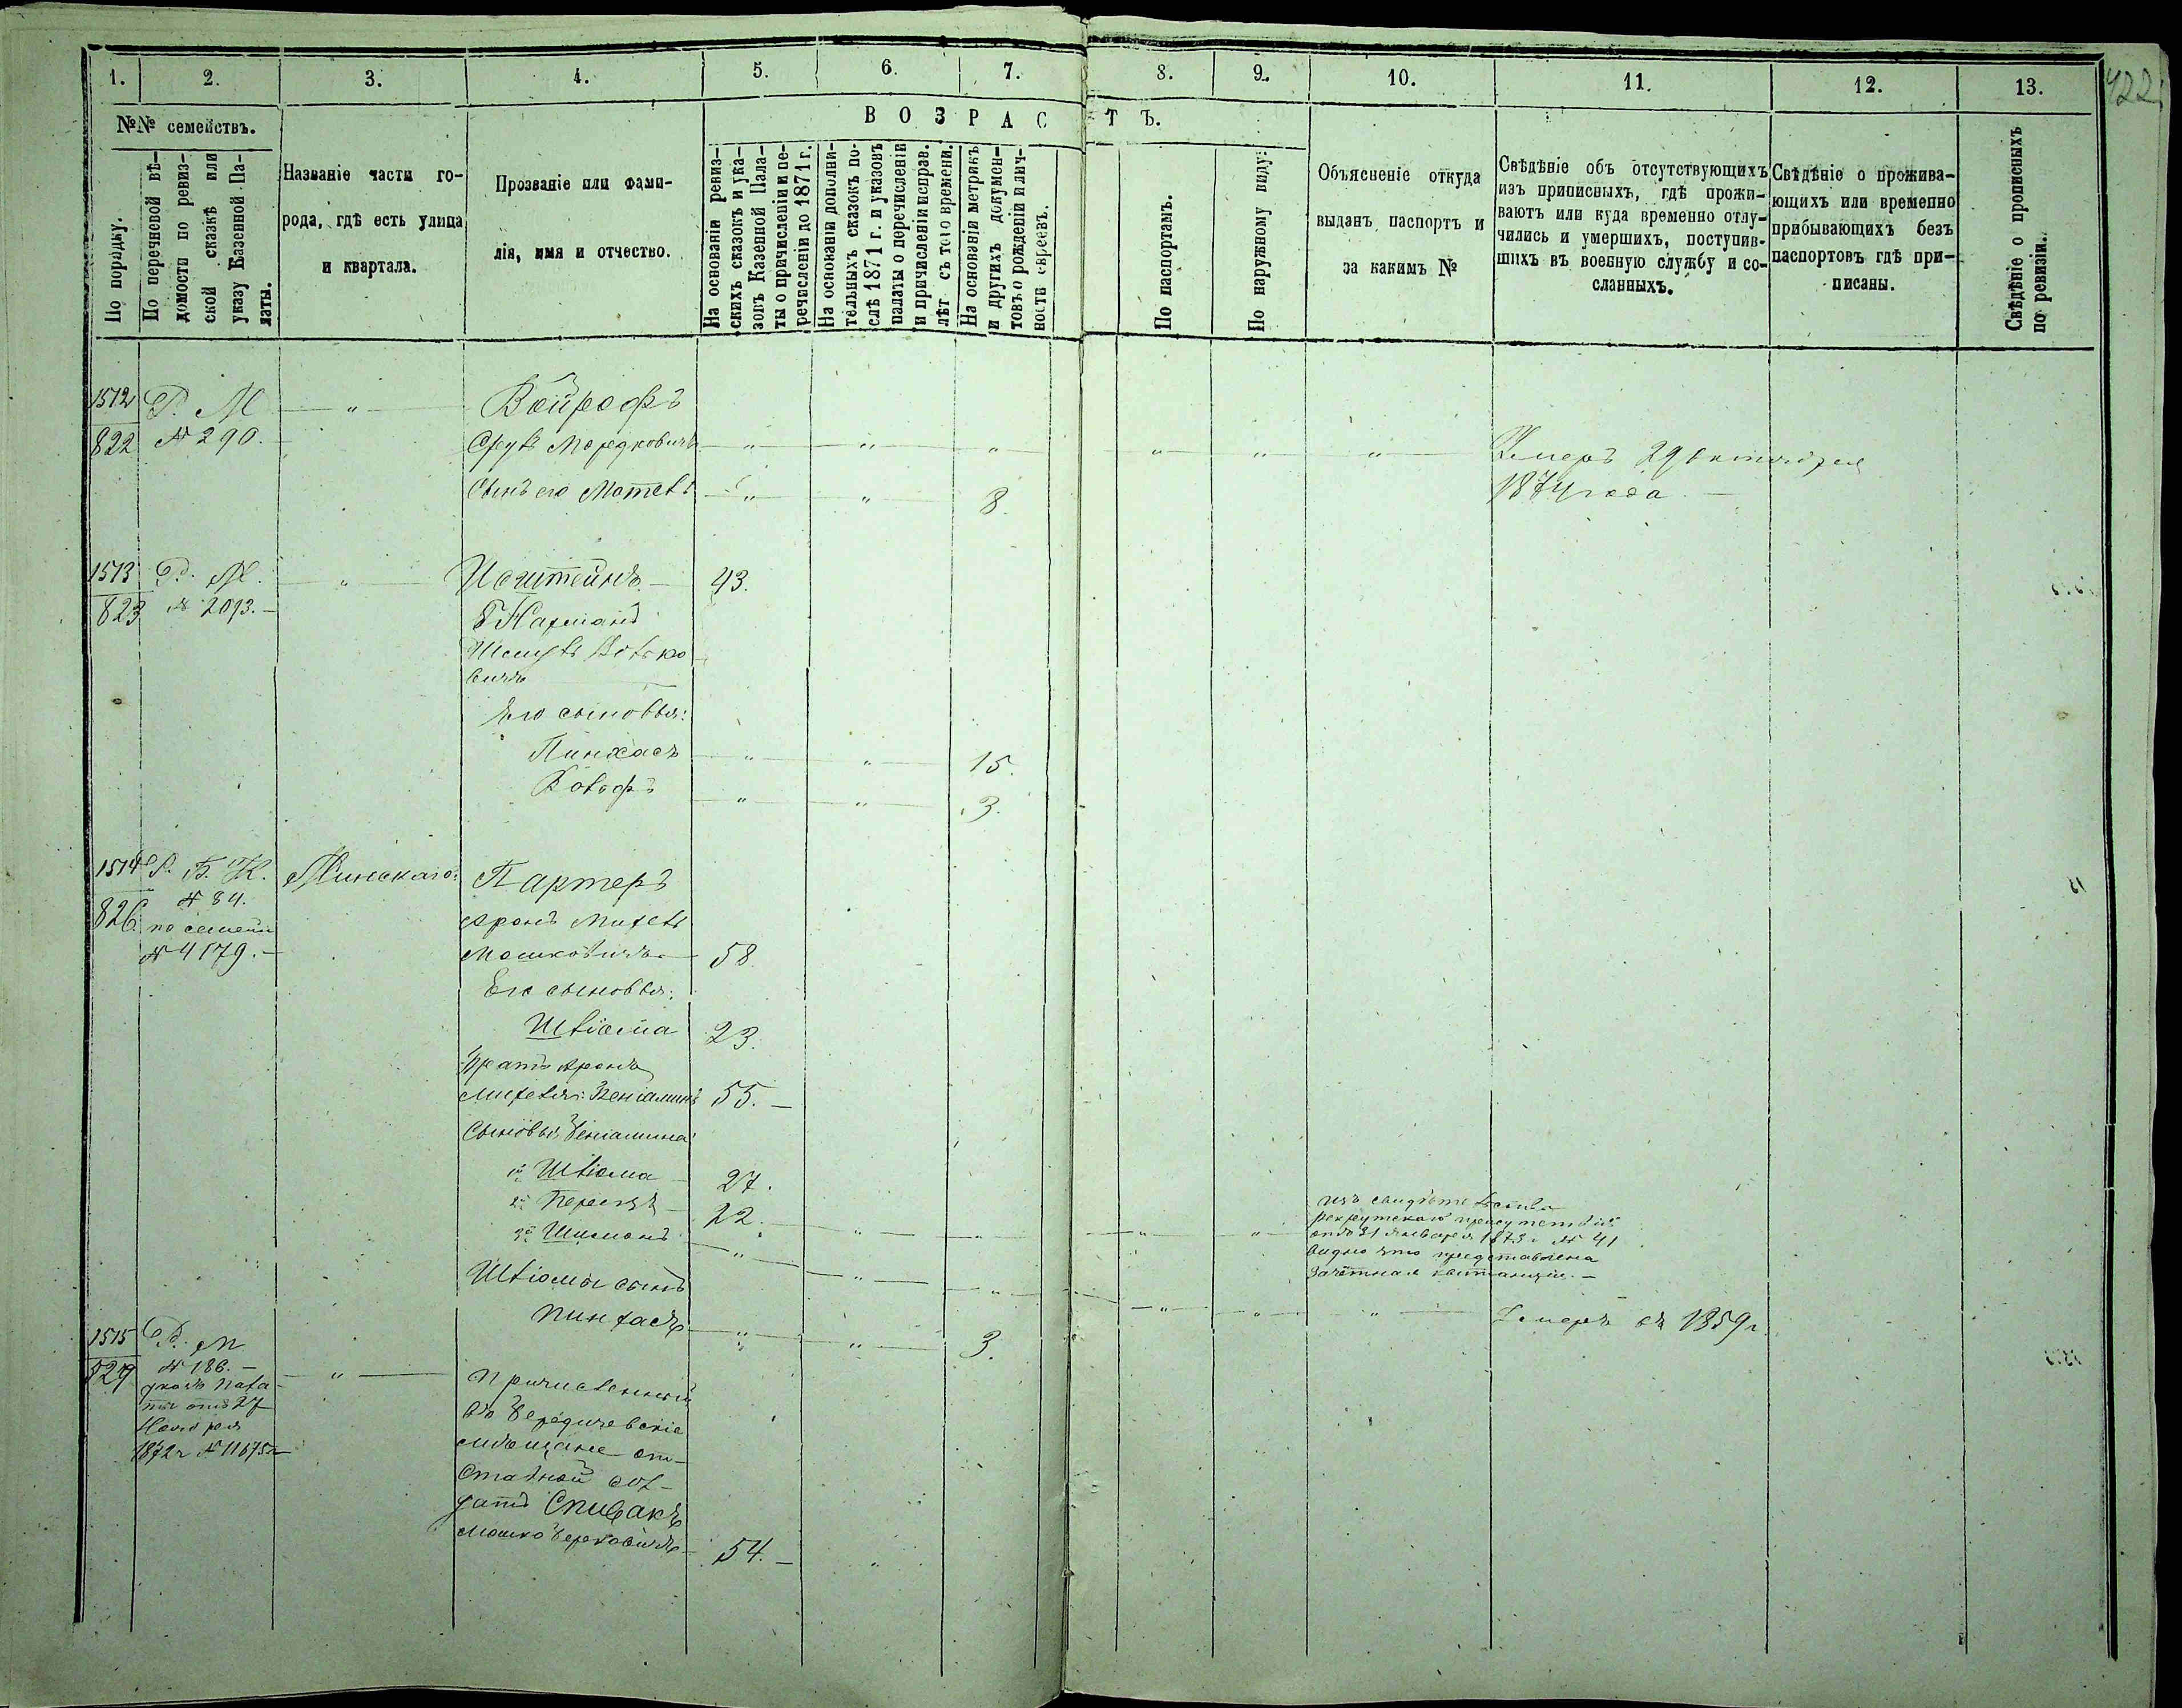 422
1. 2. 3. 4. 5. 6. 7. 8. 9. 10. 11. 12. 13.
№№ семействъ.
По порядку.
По перечневой вѣ-
домости по ревиз-
ской сказкѣ или
указу Казенной Па-
латы.
Названіе части го-
рода, гдѣ есть улица
и квартала.
Прозваніе или фами-
лія, имя и отчество.
ВОЗРАСТЪ.
На основаніи ревиз-
скихъ сказокъ и ука-
зовъ Казенной Пала-
ты о причисленіи и пе-
речисленіи до 1871 г.
На основаніи дополни-
тельныхъ сказокъ по-
слѣ 1871 г. и указовъ
палаты о перечисленіи
и причисленіи исправ.
лѣт съ того времени.
На основаніи метрикъ
и другихъ докумен-
товъ о рожденіи и лич-
ности евреевъ.
По паспортамъ.
По наружному виду:
Объясненіе откуда
выданъ паспортъ и
за какимъ №
Свѣдѣніе объ отсутствующихъ
изъ приписныхъ, гдѣ прожи-
ваютъ или куда временно отлу-
чились и умершихъ, поступив-
шихъ въ военную службу и со-
сланныхъ.
Свѣдѣніе о прожива-
ющихъ или временно
прибывающихъ безъ
паспортовъ гдѣ при-
писаны.
Свѣдѣніе о прописныхъ
по ревизіи.
1512 Р. М — " — Вайрофъ
822 № 290. Сруль Мордковичъ — " — " — " — " — " — " — Умеръ 29 октября
Сынъ его — " — " — 8. 1874 года. —
1513 Р. М. — " — 43.
823 № 2093. — Нахманъ
вичъ
Его сыновья:
Пинхасъ — " — " — 15.
— " — " — 3.
1514 Р. Б. К. Минскаго: Партеръ
826 № 84. Аронъ Михель
по семейн
№ 4179. — Мошковичъ — 58.
Его сыновья:
Шліома 23.
Братъ Арона
Михеля: Веніаминъ 55. —
Сыновья Веніамина:
1й Шліома 27.
2й — 22. —
3й Шимонъ — " — " — " — " — " —
изъ свидѣтельства
рекрутскаго присутствія
отъ 31 января 1873 г № 41
видно что представлена
зачетная квитанція. —
Шліомы сынъ — " — " — " — " — " — Умеръ въ 1859 г.
Пинхасъ — " — " — 3.
1515 Р. М
829 № 186. — — " — Причисленный
указъ Пала-
ты отъ 27
Ноября
1872 г № 11675
въ Бердичевскіе
мѣщане от-
ставной сол-
датъ Спивакъ
Мошко Берковичъ — 54. —